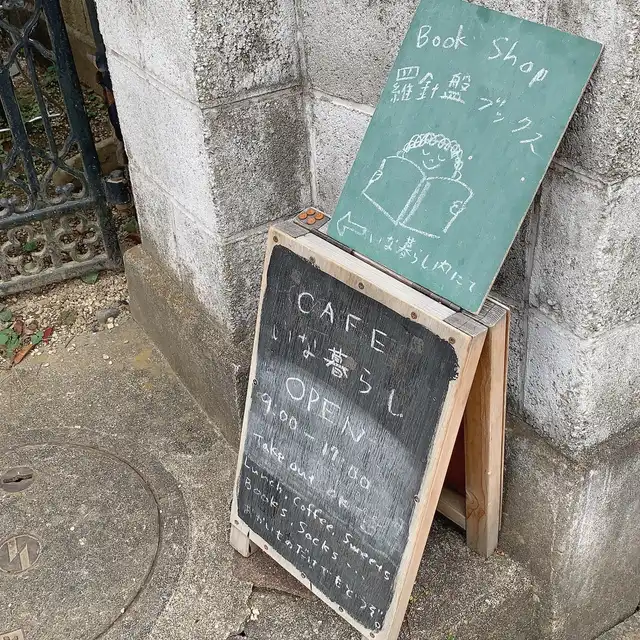 Book Shop
羅針盤ブックス
いな暮らし内にて
CAFE
いな暮らし
OPEN
9:00-17:00
Take out OK
Lunch. Coffee. Sweets
Books. Socks...
おかいものだけでもどうぞ